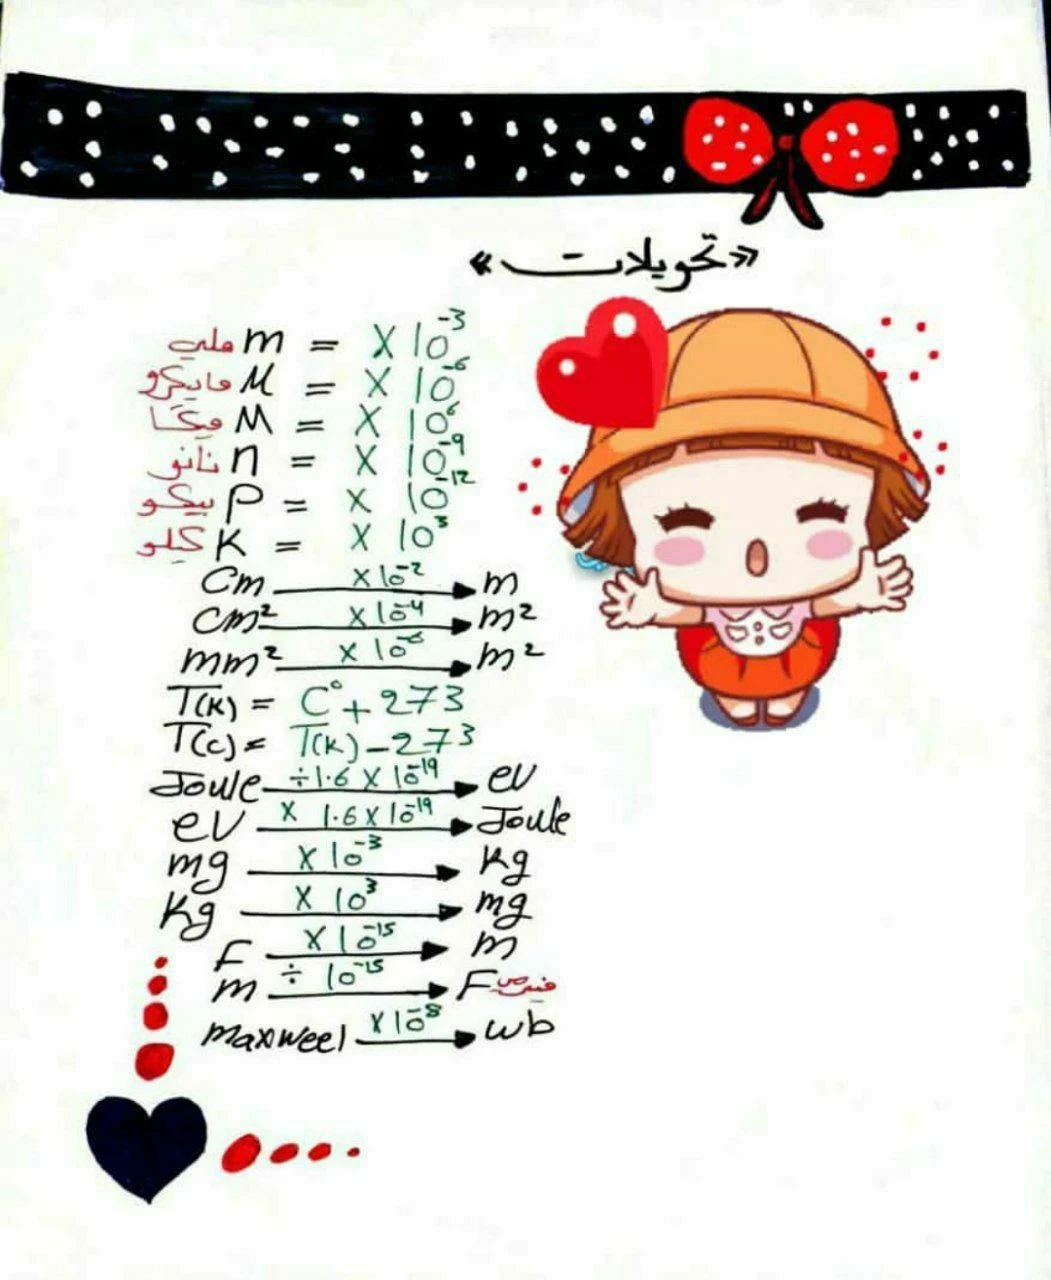 «تحويلات»
ملي m = × 10⁻³
مايكرو M = × 10⁻⁶
ميكا M = × 10⁶
نانو n = × 10⁻⁹
بيكو P = × 10⁻¹²
كيلو K = × 10³
Cm ×10⁻² → m
Cm² ×10⁻⁴ → m²
mm² ×10⁻⁶ → m²
T(K) = C° + 273
T(C) = T(K) – 273
Joule ÷1.6 × 10⁻¹⁹ → eV
eV × 1.6 × 10⁻¹⁹ → Joule
mg × 10⁻³ → Kg
Kg × 10³ → mg
F × 10⁻¹⁵ → m
m ÷ 10⁻¹⁵ → F
maxweel ×10⁻⁸ → wb